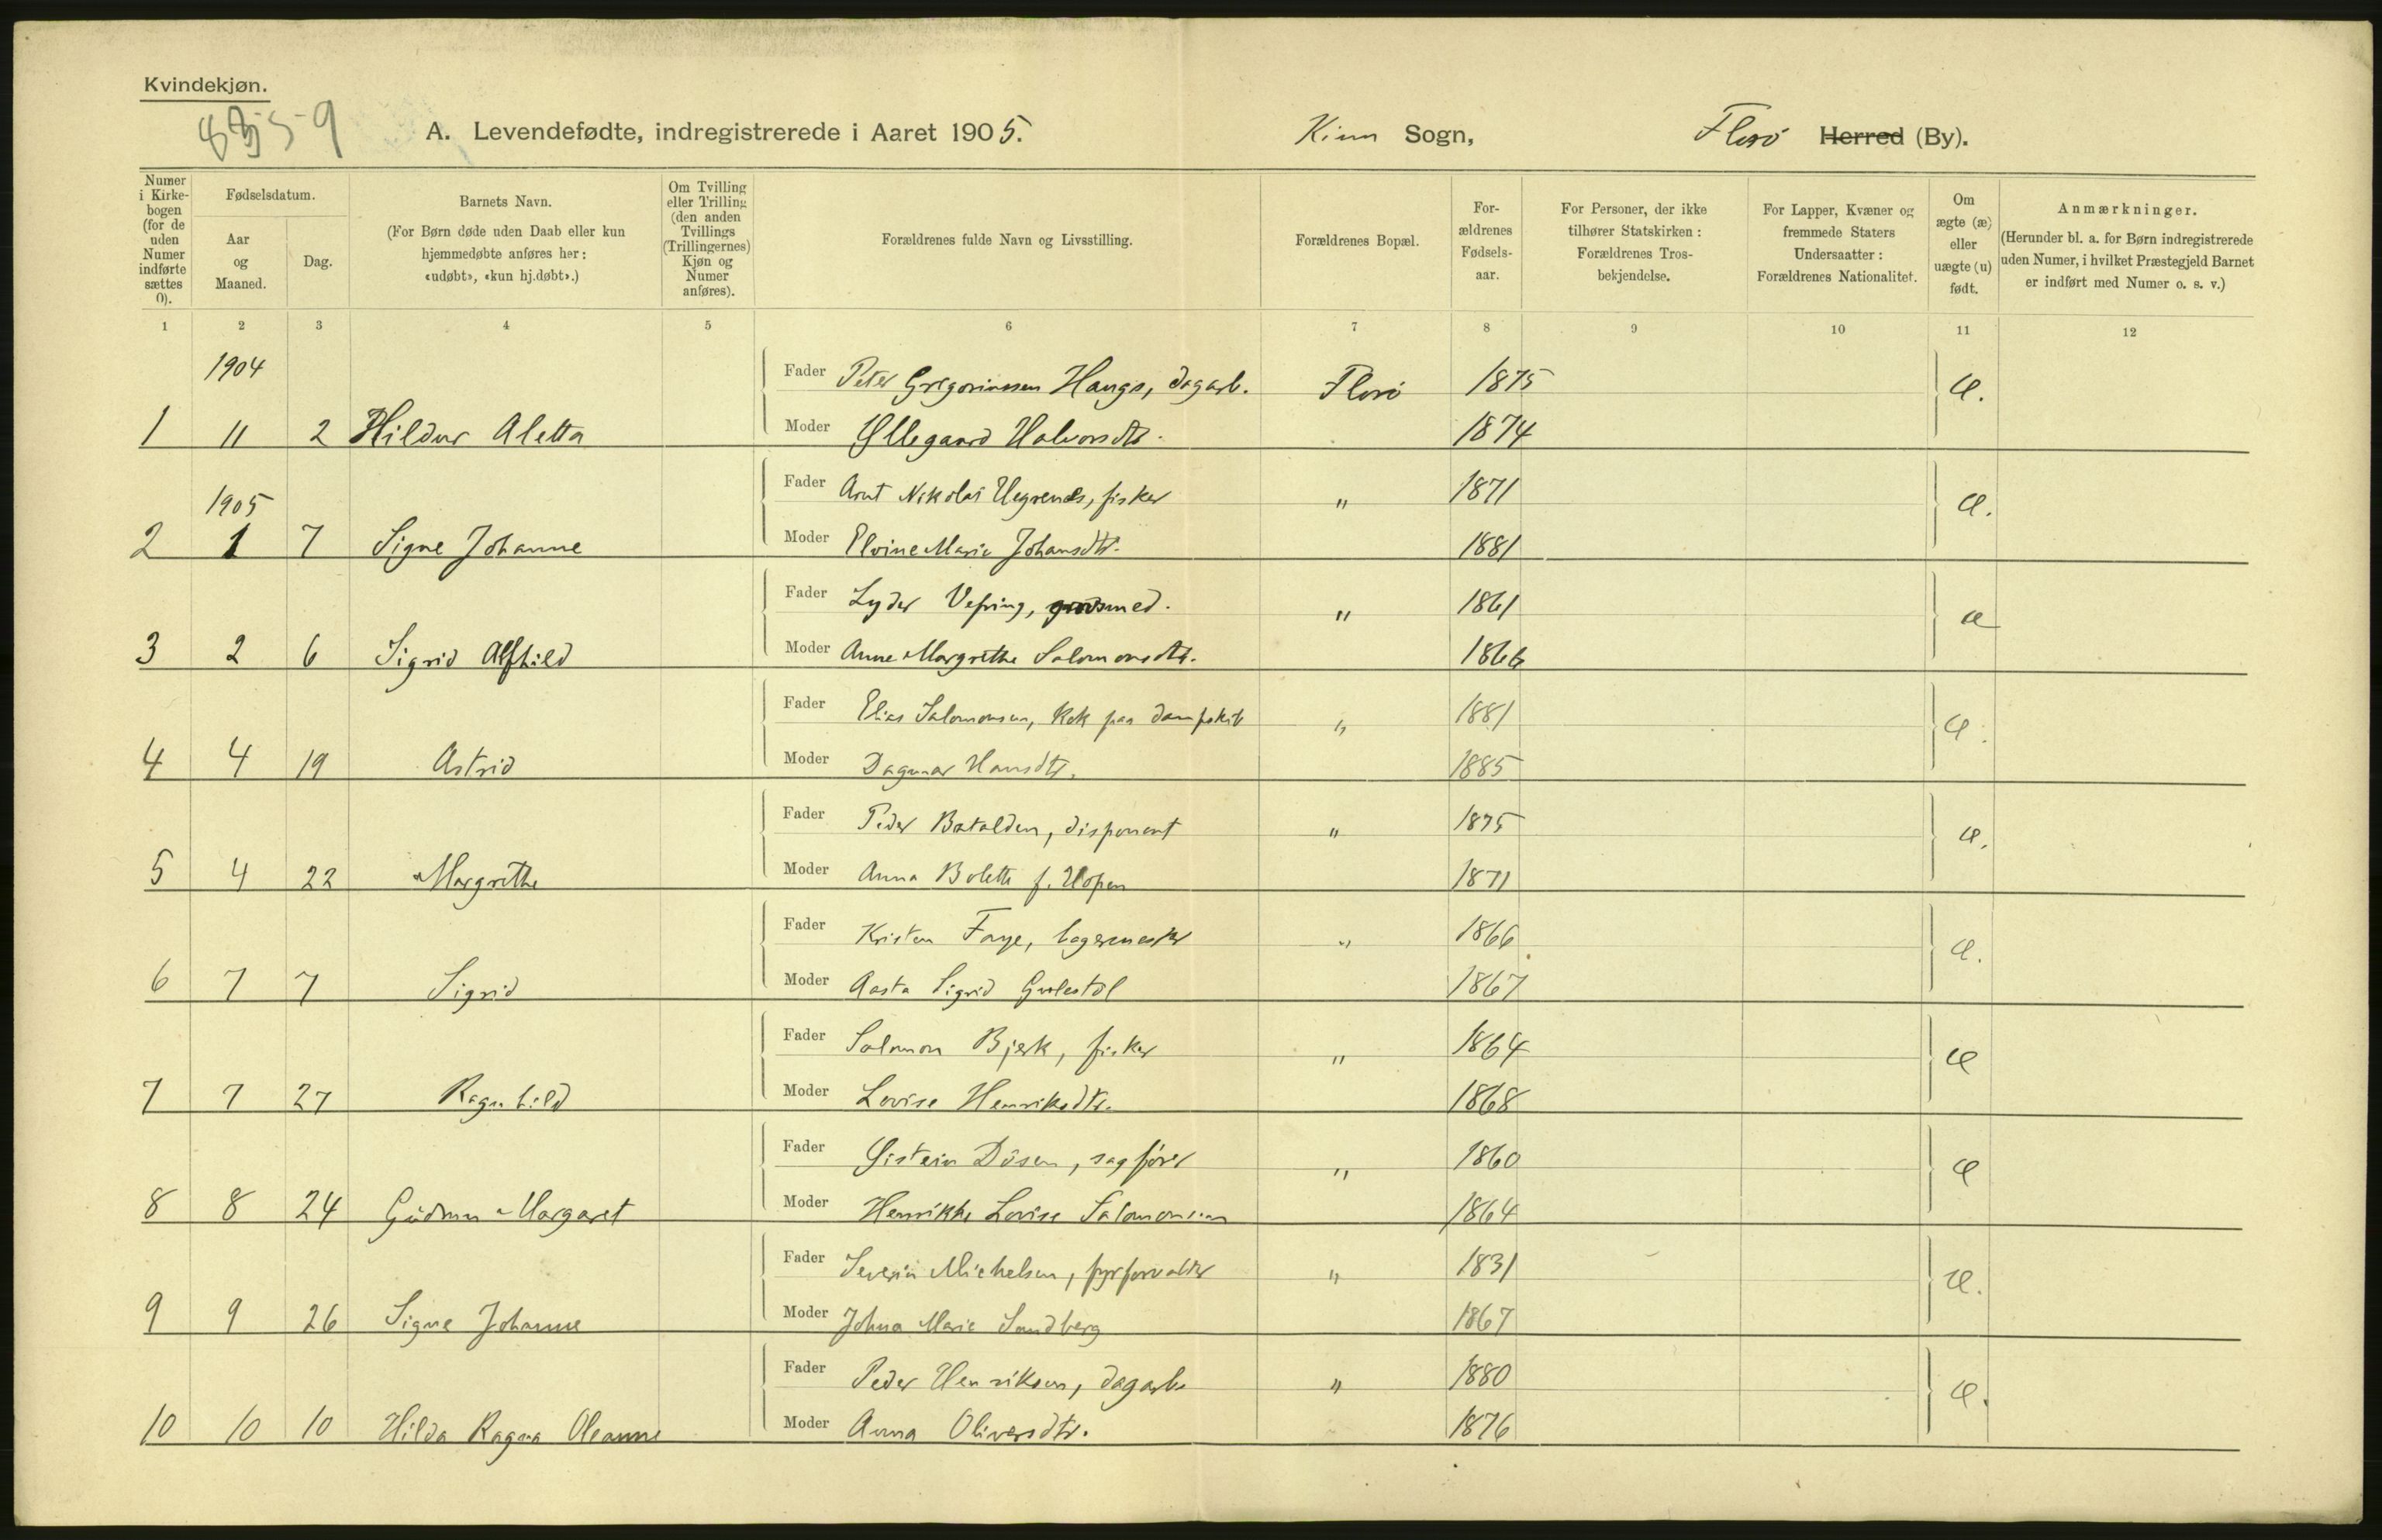 Kvindekjøn.
A. Levendefødte, indregistrerede i Aaret 1905. Kinn Sogn, Florö Herred (By).
Numer i Kirkebogen (for de uden Numer indførte sættes 0).
Fødselsdatum.
Aar og Maaned.
Dag.
Barnets Navn.
(For Børn døde uden Daab eller kun hjemmedøbte anføres her: «udøbt», «kun hj.døbt».)
Om Tvilling eller Trilling (den anden Tvillings (Trillingernes) Kjøn og Numer anføres).
Forældrenes fulde Navn og Livsstilling.
Forældrenes Bopæl.
Forældrenes Fødselsaar.
For Personer, der ikke tilhører Statskirken: Forældrenes Trosbekjendelse.
For Lapper, Kvæner og fremmede Staters Undersaatter: Forældrenes Nationalitet.
Om ægte (æ) eller uægte (u) født.
Anmærkninger.
(Herunder bl. a. for Børn indregistrerede uden Numer, i hvilket Præstegjeld Barnet er indført med Numer o. s. v.)
1 2 3 4 5 6 7 8 9 10 11 12
1904 Fader Peter Grigoriussen Hauge, dagarb. Florö 1875 æ.
1 11 2 Hildur Aletta Moder Øllegaard Halvorsdtr. 1874
1905 Fader Arnt Nikolai Hegrenes, fisker " 1871 æ.
2 1 7 Signe Johanne Moder Elvine Marie Johansdtr. 1881
Fader Lyder Vefring, 1861 " æ
3 2 6 Sigrid Alfhild Moder Anne Margrethe Salomonsdtr. 1866
Fader Elias Salomonsen, Kok paa dampskib " 1881 æ.
4 4 19 Astrid Moder Dagmar Hansdtr. 1885
Fader Peder Batalden, disponent " 1875 æ.
5 4 22 Margrethe Moder Anna Bolette f. Hopen 1871
Fader Kristen Faye, bagermester " 1866 æ.
6 7 7 Sigrid Moder Aasta Sigrid 1867
Fader Salomon Bjerk, fisker " 1864 æ
7 7 27 Ragnhild Moder Lovise Henriksdtr. 1868
Fader Øistein Døsen, sagfører " 1860 æ
8 8 24 Gudrun Margaret Moder Henrikke Lovise Salomonsen 1864
Fader Severin Michelsen, fyrforvalter " 1831 æ.
9 9 26 Signe Johanne Moder Johna Marie Sandberg 1867
Fader Peder Henriksen, dagarb. " 1880 æ.
10 10 10 Hilda Ragna Oleanne Moder Anna Oliversdtr. 1876